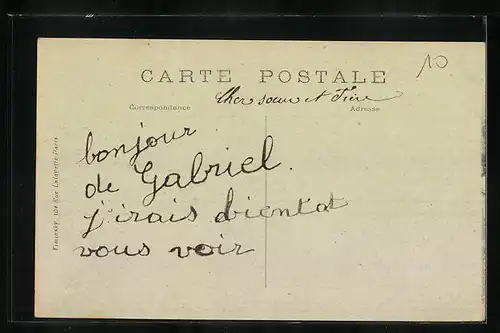 10
CARTE POSTALE
Cher soeur et Frère
Correspondance
Adresse
bonjour
de Gabriel.
j'irais bientot
vous voir
104 Rue Lafayette, Paris